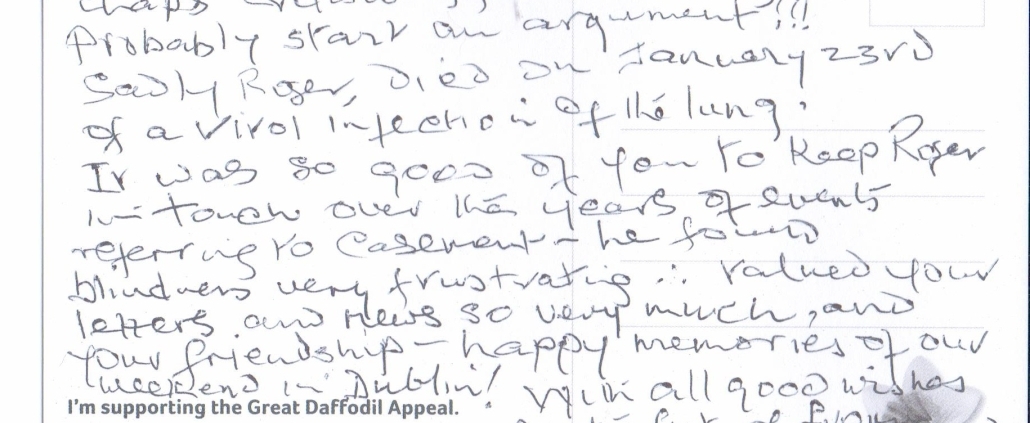 chaps
Probably start an argument!!!
Sadly Roger, Died on January 23rd
of a viral infection of the lung.
It was so good of you to keep Roger
in touch over the years of events
referring to Casement - he found
blindness very frustrating ∴ valued your
letters and news so very much, and
your friendship - happy memories of our
weekend in Dublin! With all good wishes
I'm supporting the Great Daffodil Appeal.